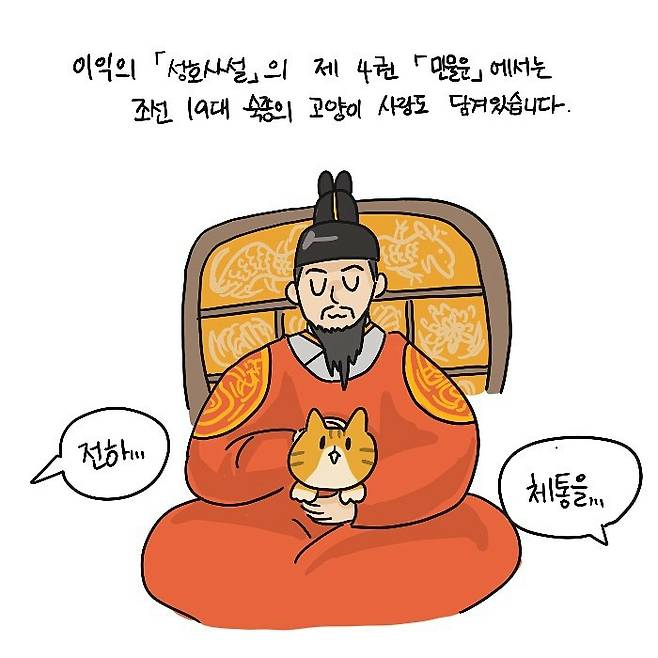 이익의 「성호사설」의 제 4권 「만물문」에서는
조선 19대 숙종의 고양이 사랑도 담겨있습니다.
전하...
체통을...